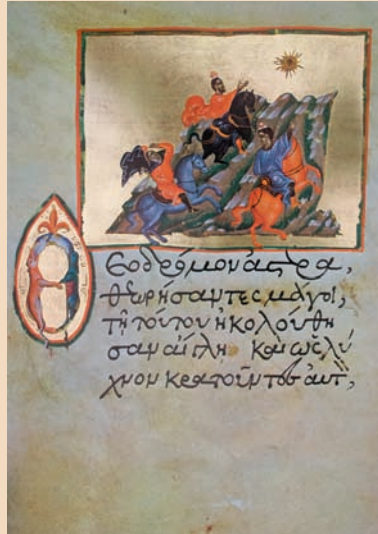 Θεοδρόμον ἀστέρα,
θεωρήσαντες μάγοι,
τῇ τούτου ἠκολούθη
σαν αἴγλῃ καὶ ὡς λύ
χνον κρατοῦντες αὐτ,